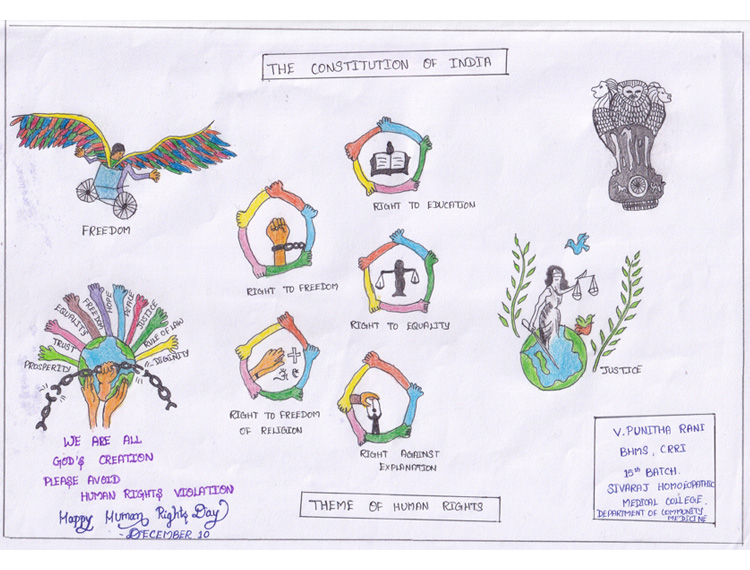 THE CONSTITUTION OF INDIA
FREEDOM
RIGHT TO EDUCATION
RIGHT TO FREEDOM
RIGHT TO EQUALITY
RIGHT TO FREEDOM
OF RELIGION
RIGHT AGAINST
EXPLANATION
JUSTICE
PROSPERITY
TRUST
EQUALITY
FREEDOM
PEACE
JUSTICE
RULE OF LAW
DIGINITY
WE ARE ALL
GOD'S CREATION
PLEASE AVOID
HUMAN RIGHTS VIOLATION
Happy Human Rights Day
- DECEMBER 10
THEME OF HUMAN RIGHTS
V.PUNITHA RANI
BHMS, CRRI
15th BATCH.
SIVARAJ HOMOEOPATHIC
MEDICAL COLLEGE,
DEPARTMENT OF COMMUNITY
MEDICINE